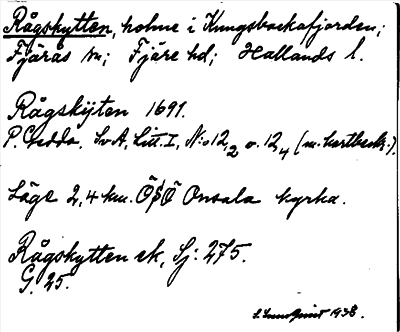 Rågskytten, holme i Kungsbackafjorden;
Fjärås sn; Fjäre hd; Hallands l.
Rågskijten 1691.
P. Gedda. SvA, Litt. I, N:o 12,2 o. 12,4 (m. kartbeskr.).
Läge 2,4 km. ÖSÖ Onsala kyrka.
Rågskytten ek, Sj: 275.
G. 25.
1938.